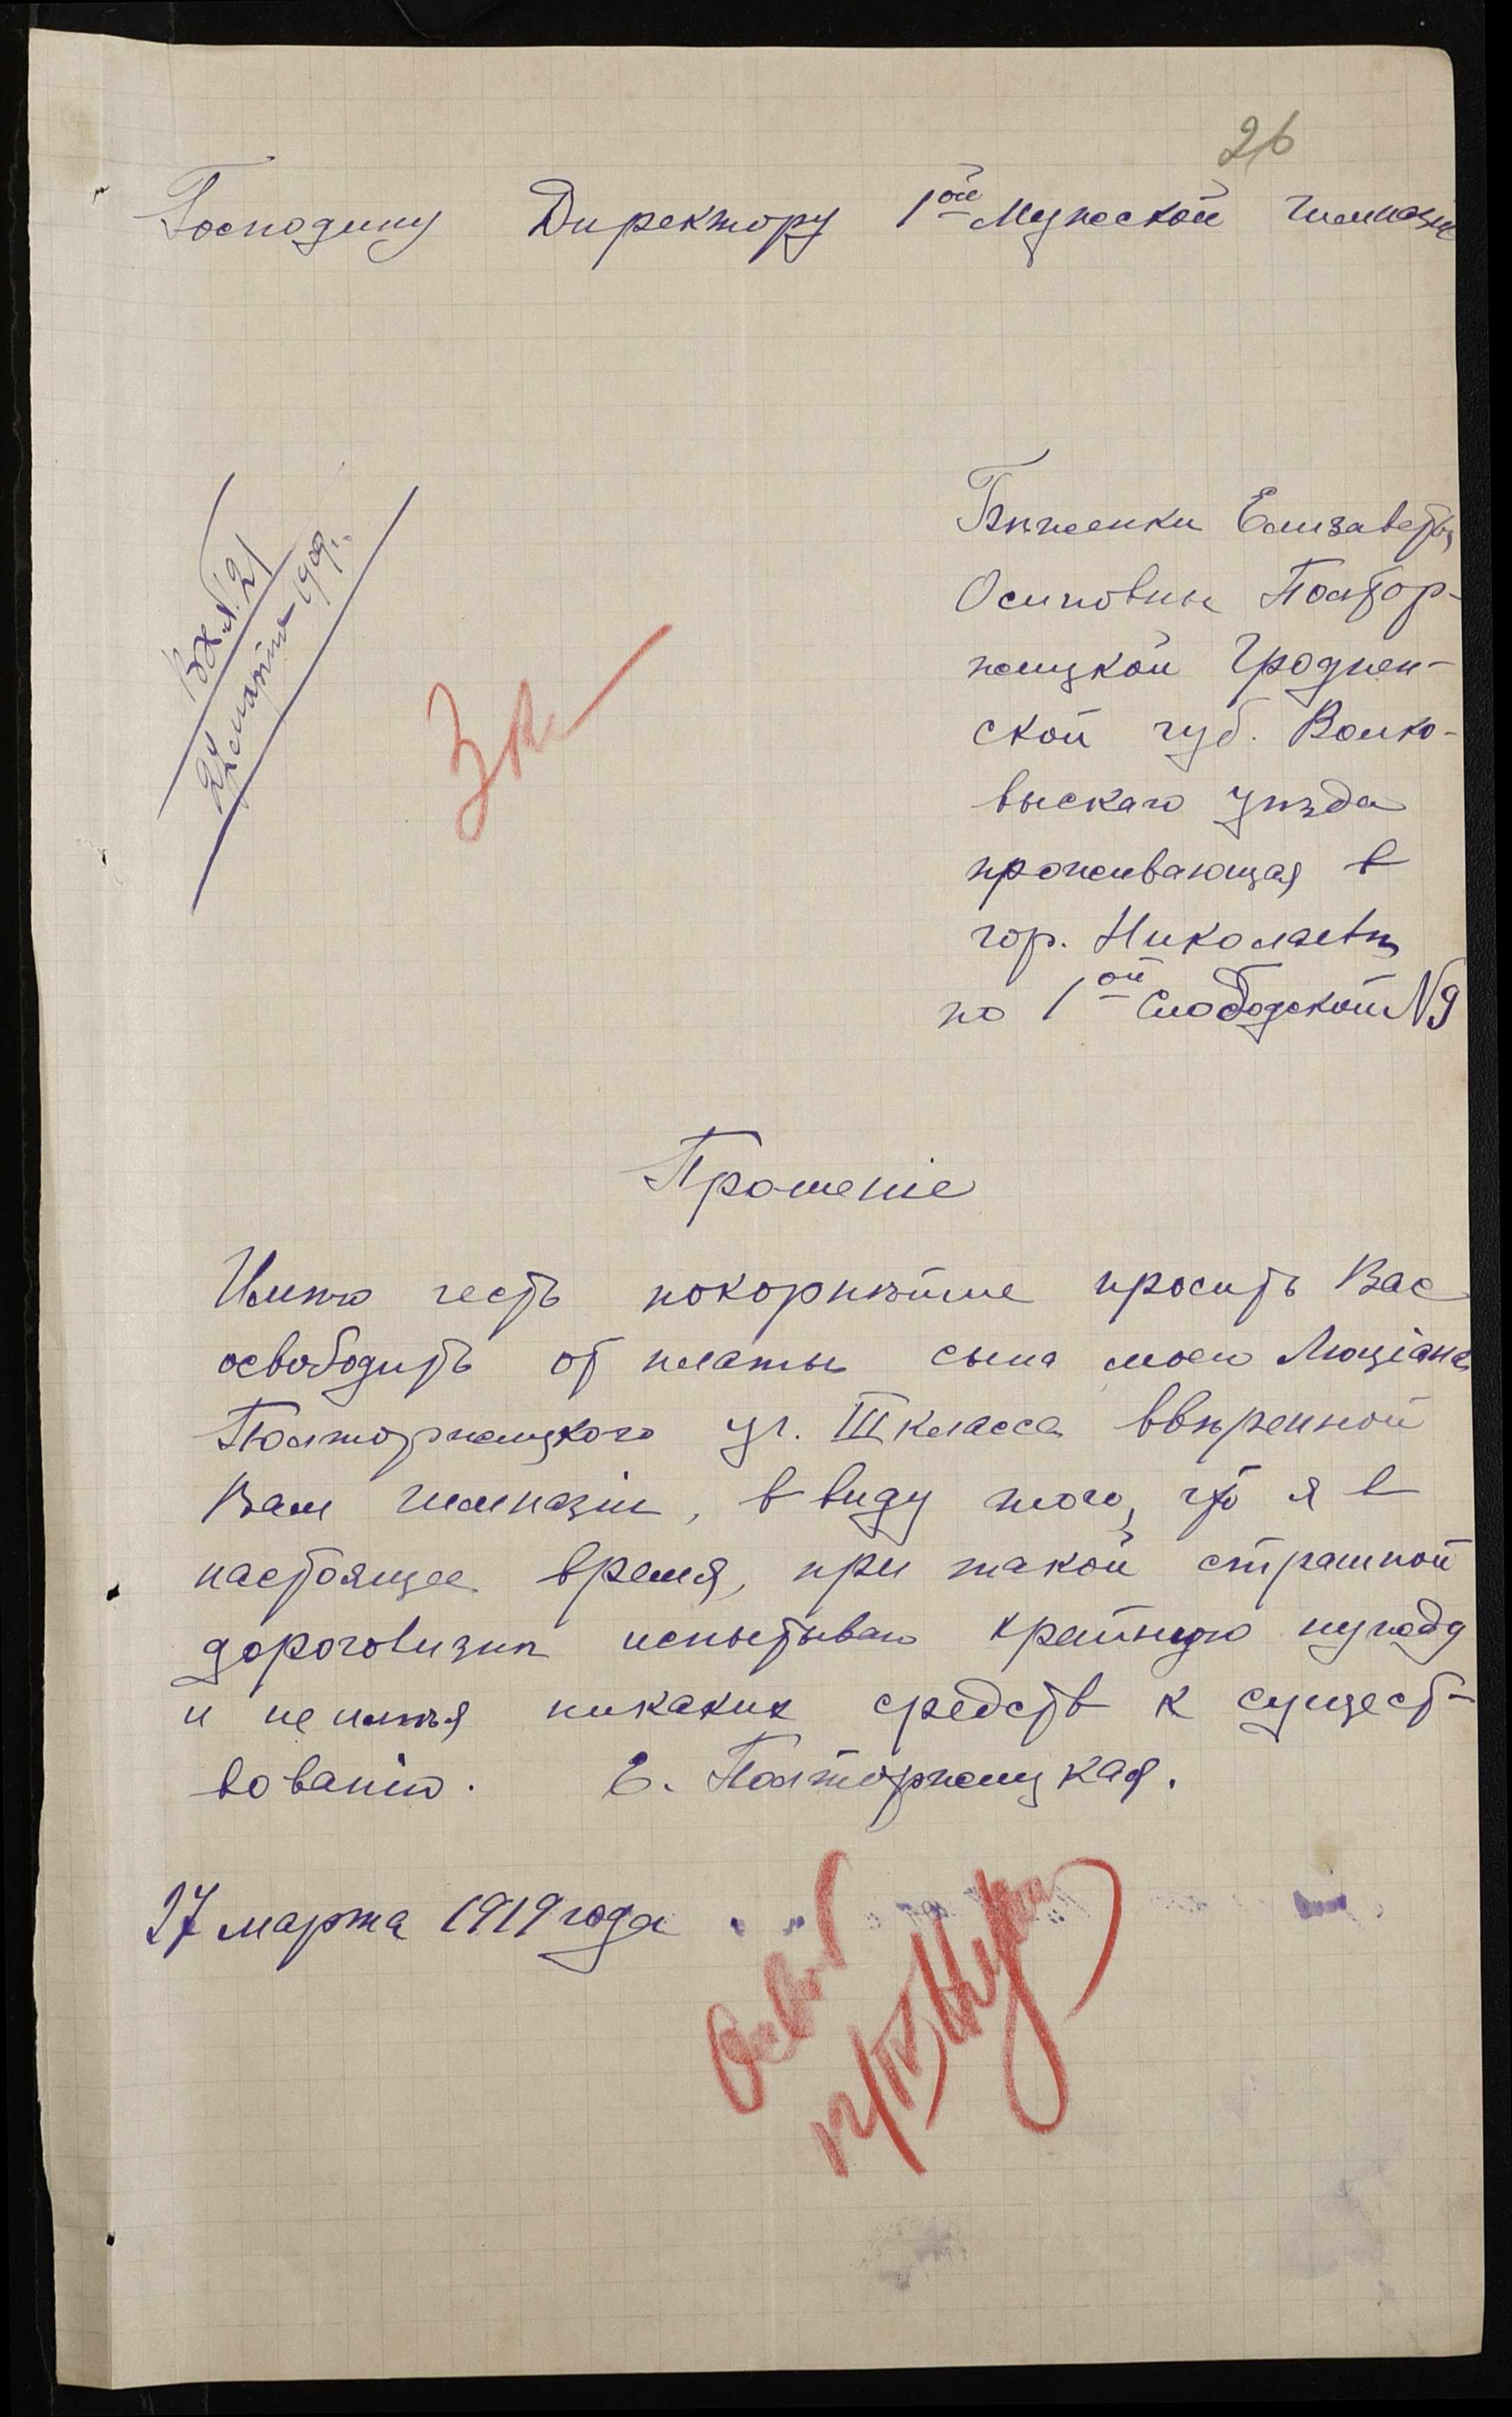 26
Господину Директору 1ой Мужской гимназіи
Бѣженки Елизаветы
Осиповны Полтор-
жицкой Гроднен-
ской губ. Волко-
выскаго уѣзда
проживающая в
гор. Николаевѣ
по 1ой Слободской N9
Вх. N. 21
марта 1909г.
3 к
Прошеніе
Имѣю честь покорнѣйше просить Вас
освободить от платы сына моего Люціана
Полторжицкого уч. III класса ввѣренной
Вам гимназіи, в виду того, что я в
настоящее время, при такой страшной
дороговизнѣ испытываю крайнюю нужду
и не имѣя никаких средств к сущест-
вованію. Е. Полторжицкая.
27 марта 1919 года
Осв
12/IV